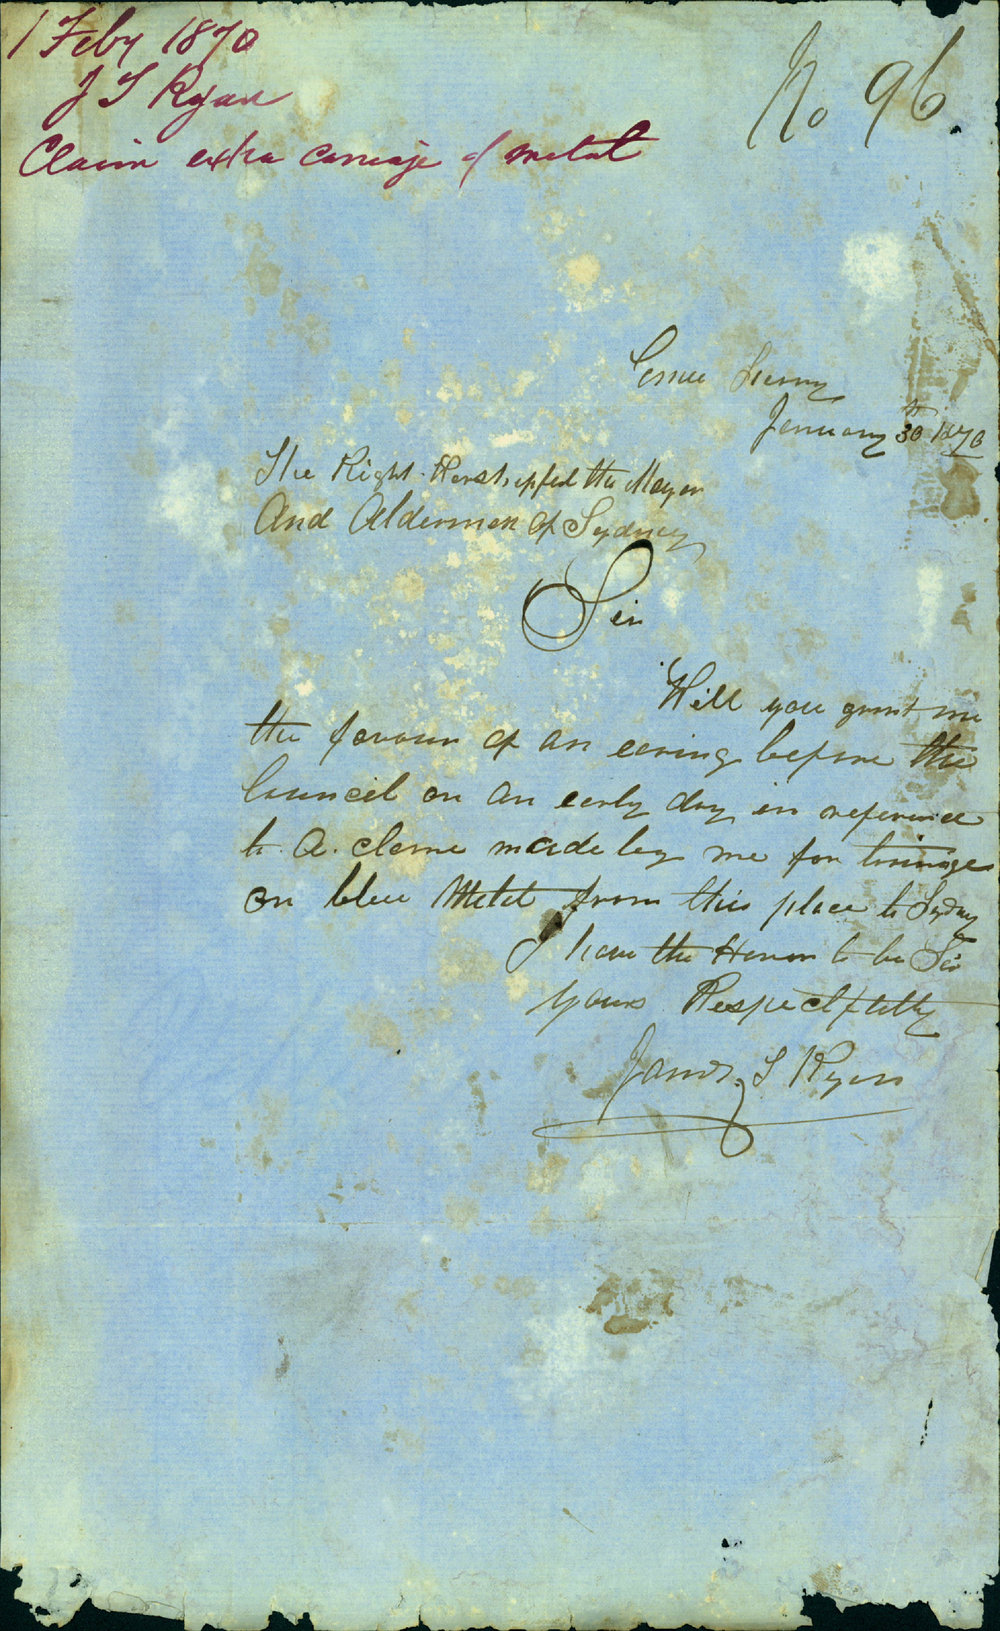 1 Feby 1870
J T Ryan
Claim extra carriage of metal
No 96
January 30th 1870
The Right Worshipful the Mayor
And Aldermen of Sydney
Sir
Will you grant me
the favour of an earing before the
Council on an early day in reference
to A. clame made by me for tonnage
on blue Metel from this place to Sydney
I have the Honor to be Sir
Yours Respectfully
James T Ryan